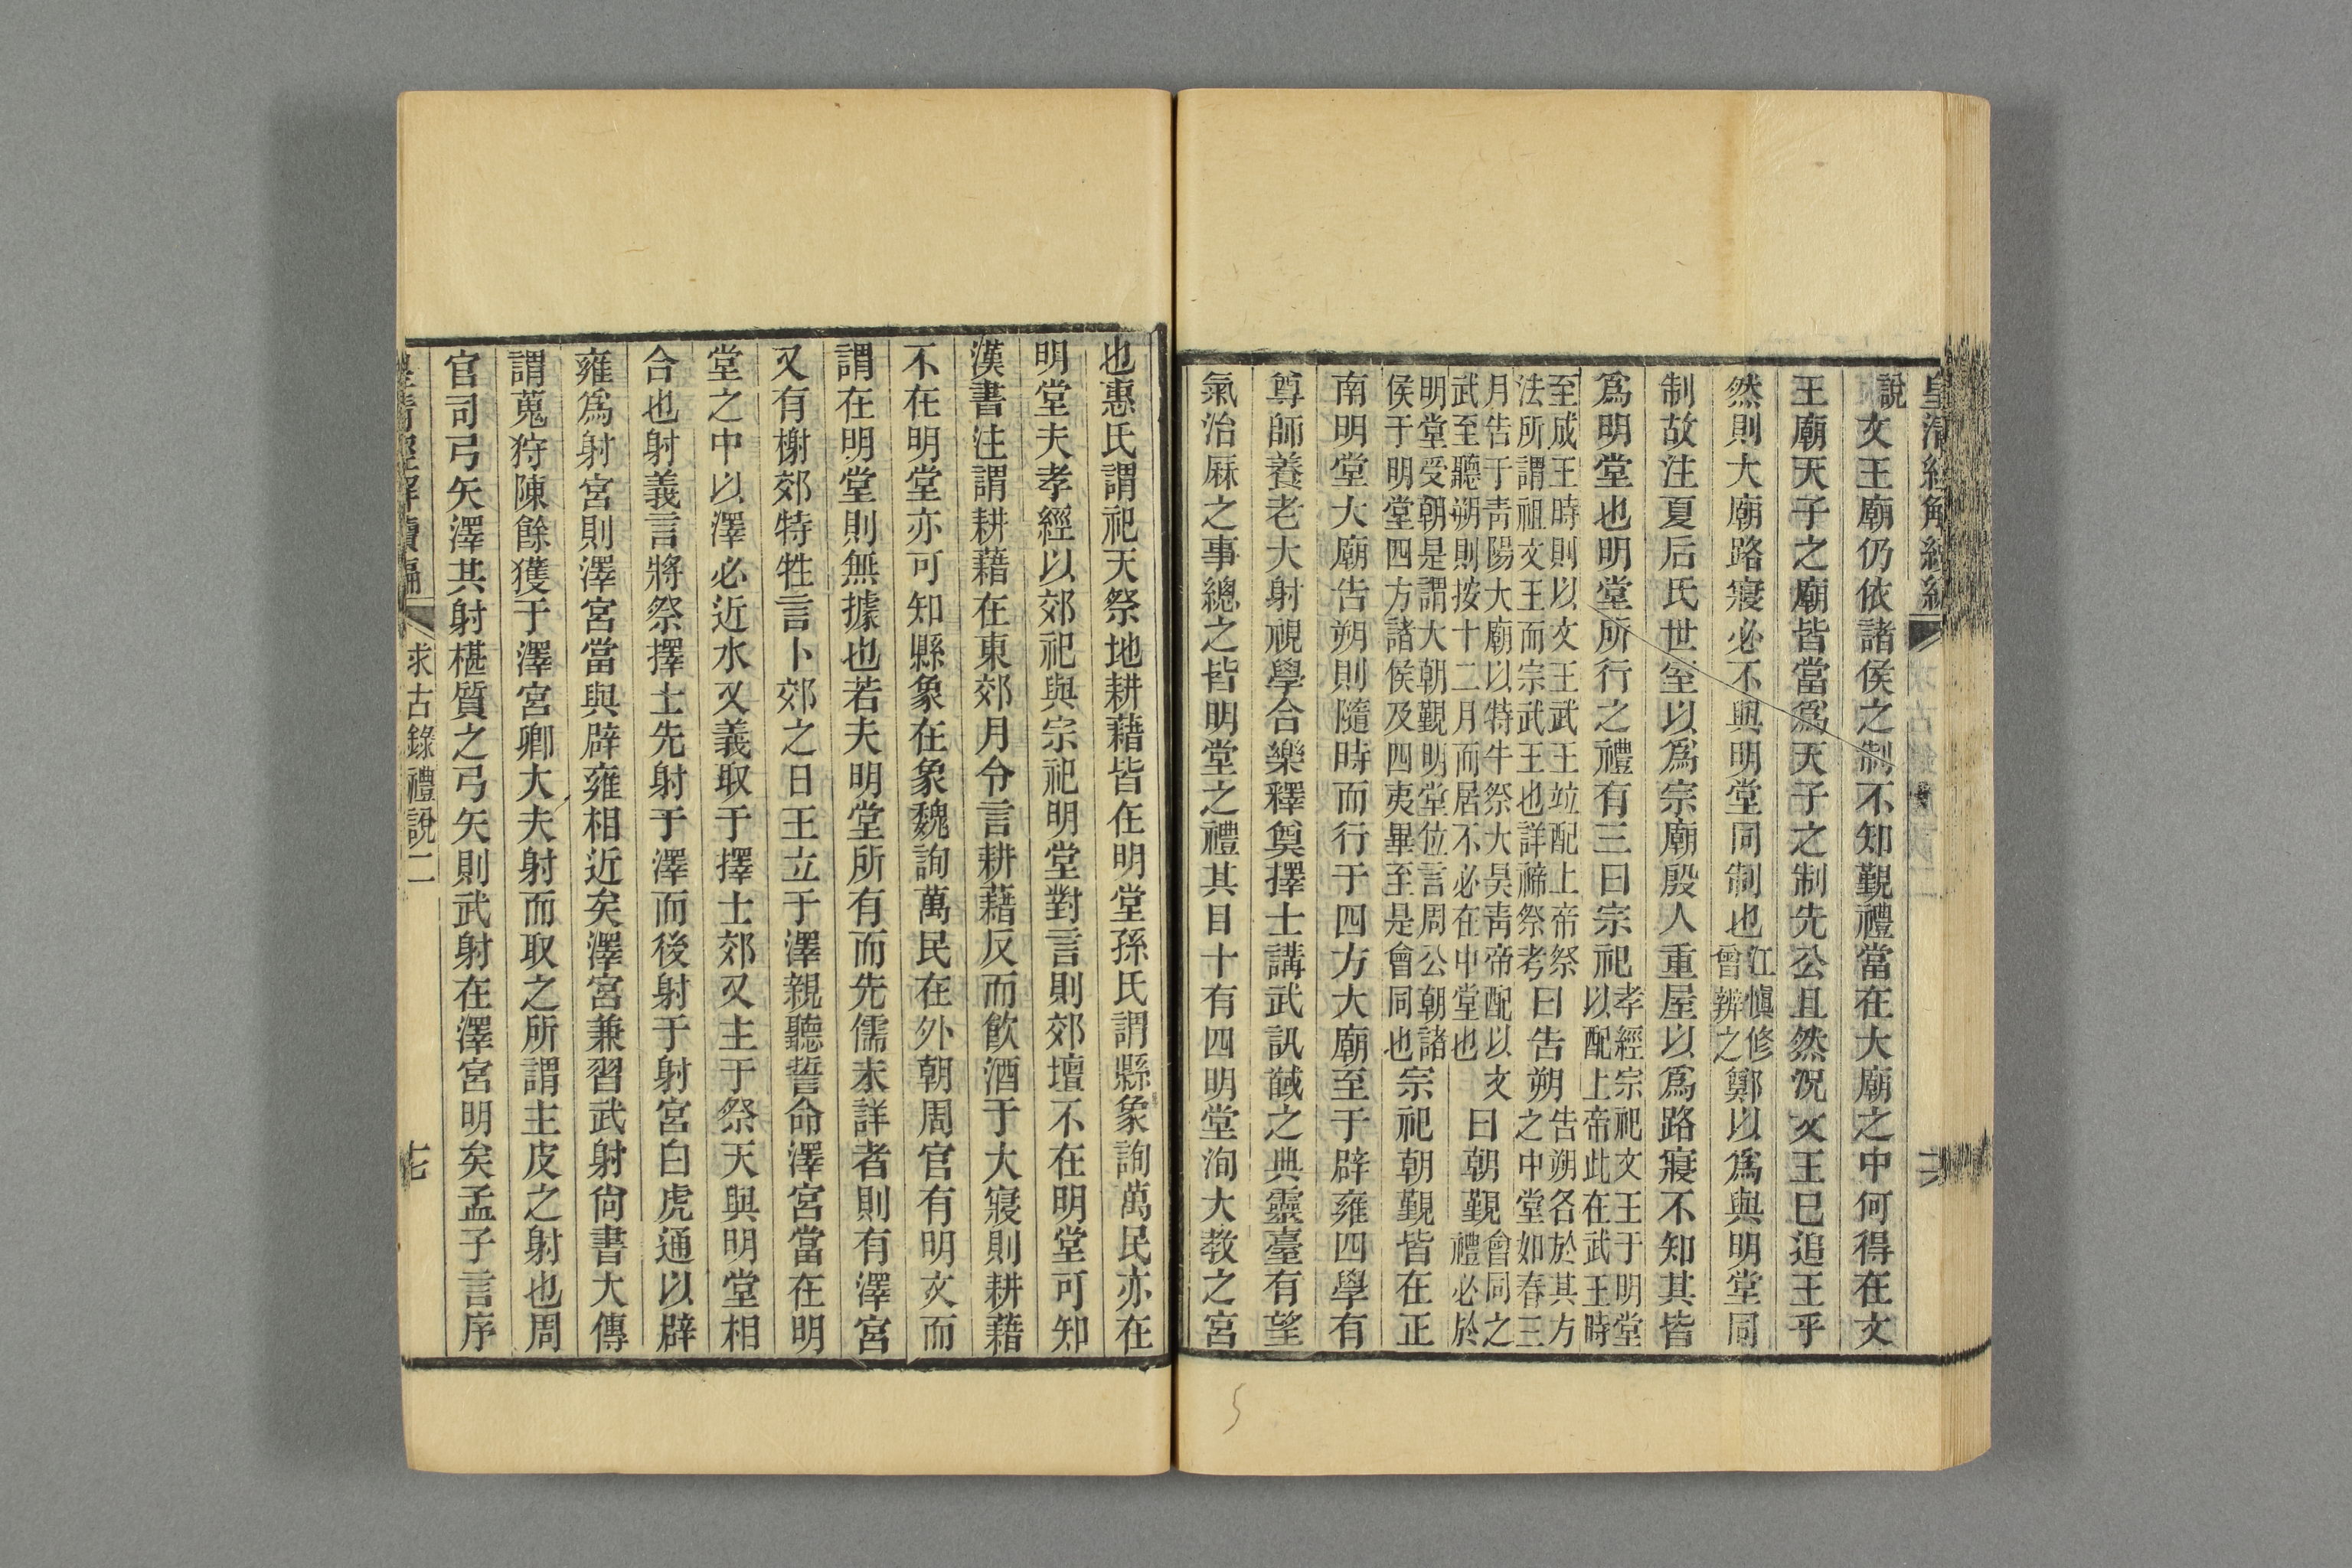 皇清經解續編 十六
說文王廟仍依諸侯之制不知覲禮當在大廟之中何得在文
王廟天子之廟皆當爲天子之制先公且然況文王已追王乎
然則大廟路寢必不與明堂同制也江愼修曾辨之鄭以爲與明堂同
制故注夏后氏世室以爲宗廟殷人重屋以爲路寢不知其皆
爲明堂也明堂所行之禮有三曰宗祀孝經宗祀文王于明堂以配上帝此在武王時
至成王時則以文王武王竝配上帝祭法所謂祖文王而宗武王也詳禘祭考曰告朔告朔各於其方之中堂如春三
月告于靑陽大廟以特牛祭大昊靑帝配以文武至聽朔則按十二月而居不必在中堂也曰朝覲會同之禮必於
明堂受朝是謂大朝覲明堂位言周公朝諸侯于明堂四方諸侯及四夷畢至是會同也宗祀朝覲皆在正
南明堂大廟告朔則隨時而行于四方大廟至于辟雍四學有
尊師養老大射視學合樂釋奠擇士講武訊馘之典靈臺有望
氣治厤之事總之皆明堂之禮其目十有四明堂洵大教之宮
也惠氏謂祀天祭地耕藉皆在明堂孫氏謂縣象詢萬民亦在
明堂夫孝經以郊祀與宗祀明堂對言則郊壇不在明堂可知
漢書注謂耕藉在東郊月令言耕藉反而飮酒于大寢則耕藉
不在明堂亦可知縣象在象魏詢萬民在外朝周官有明文而
謂在明堂則無據也若夫明堂所有而先儒未詳者則有澤宮
又有榭郊特牲言卜郊之日王立于澤親聽誓命澤宮當在明
堂之中以澤必近水又義取于擇士郊又主于祭天與明堂相
合也射義言將祭擇士先射于澤而後射于射宮白虎通以辟
雍爲射宮則澤宮當與辟雍相近矣澤宮兼習武射尙書大傳
謂蒐狩陳餘獲于澤宮卿大夫射而取之所謂主皮之射也周
官司弓矢澤共射椹質之弓矢則武射在澤宮明矣孟子言序
皇清經解續編 求古錄禮說二 十七